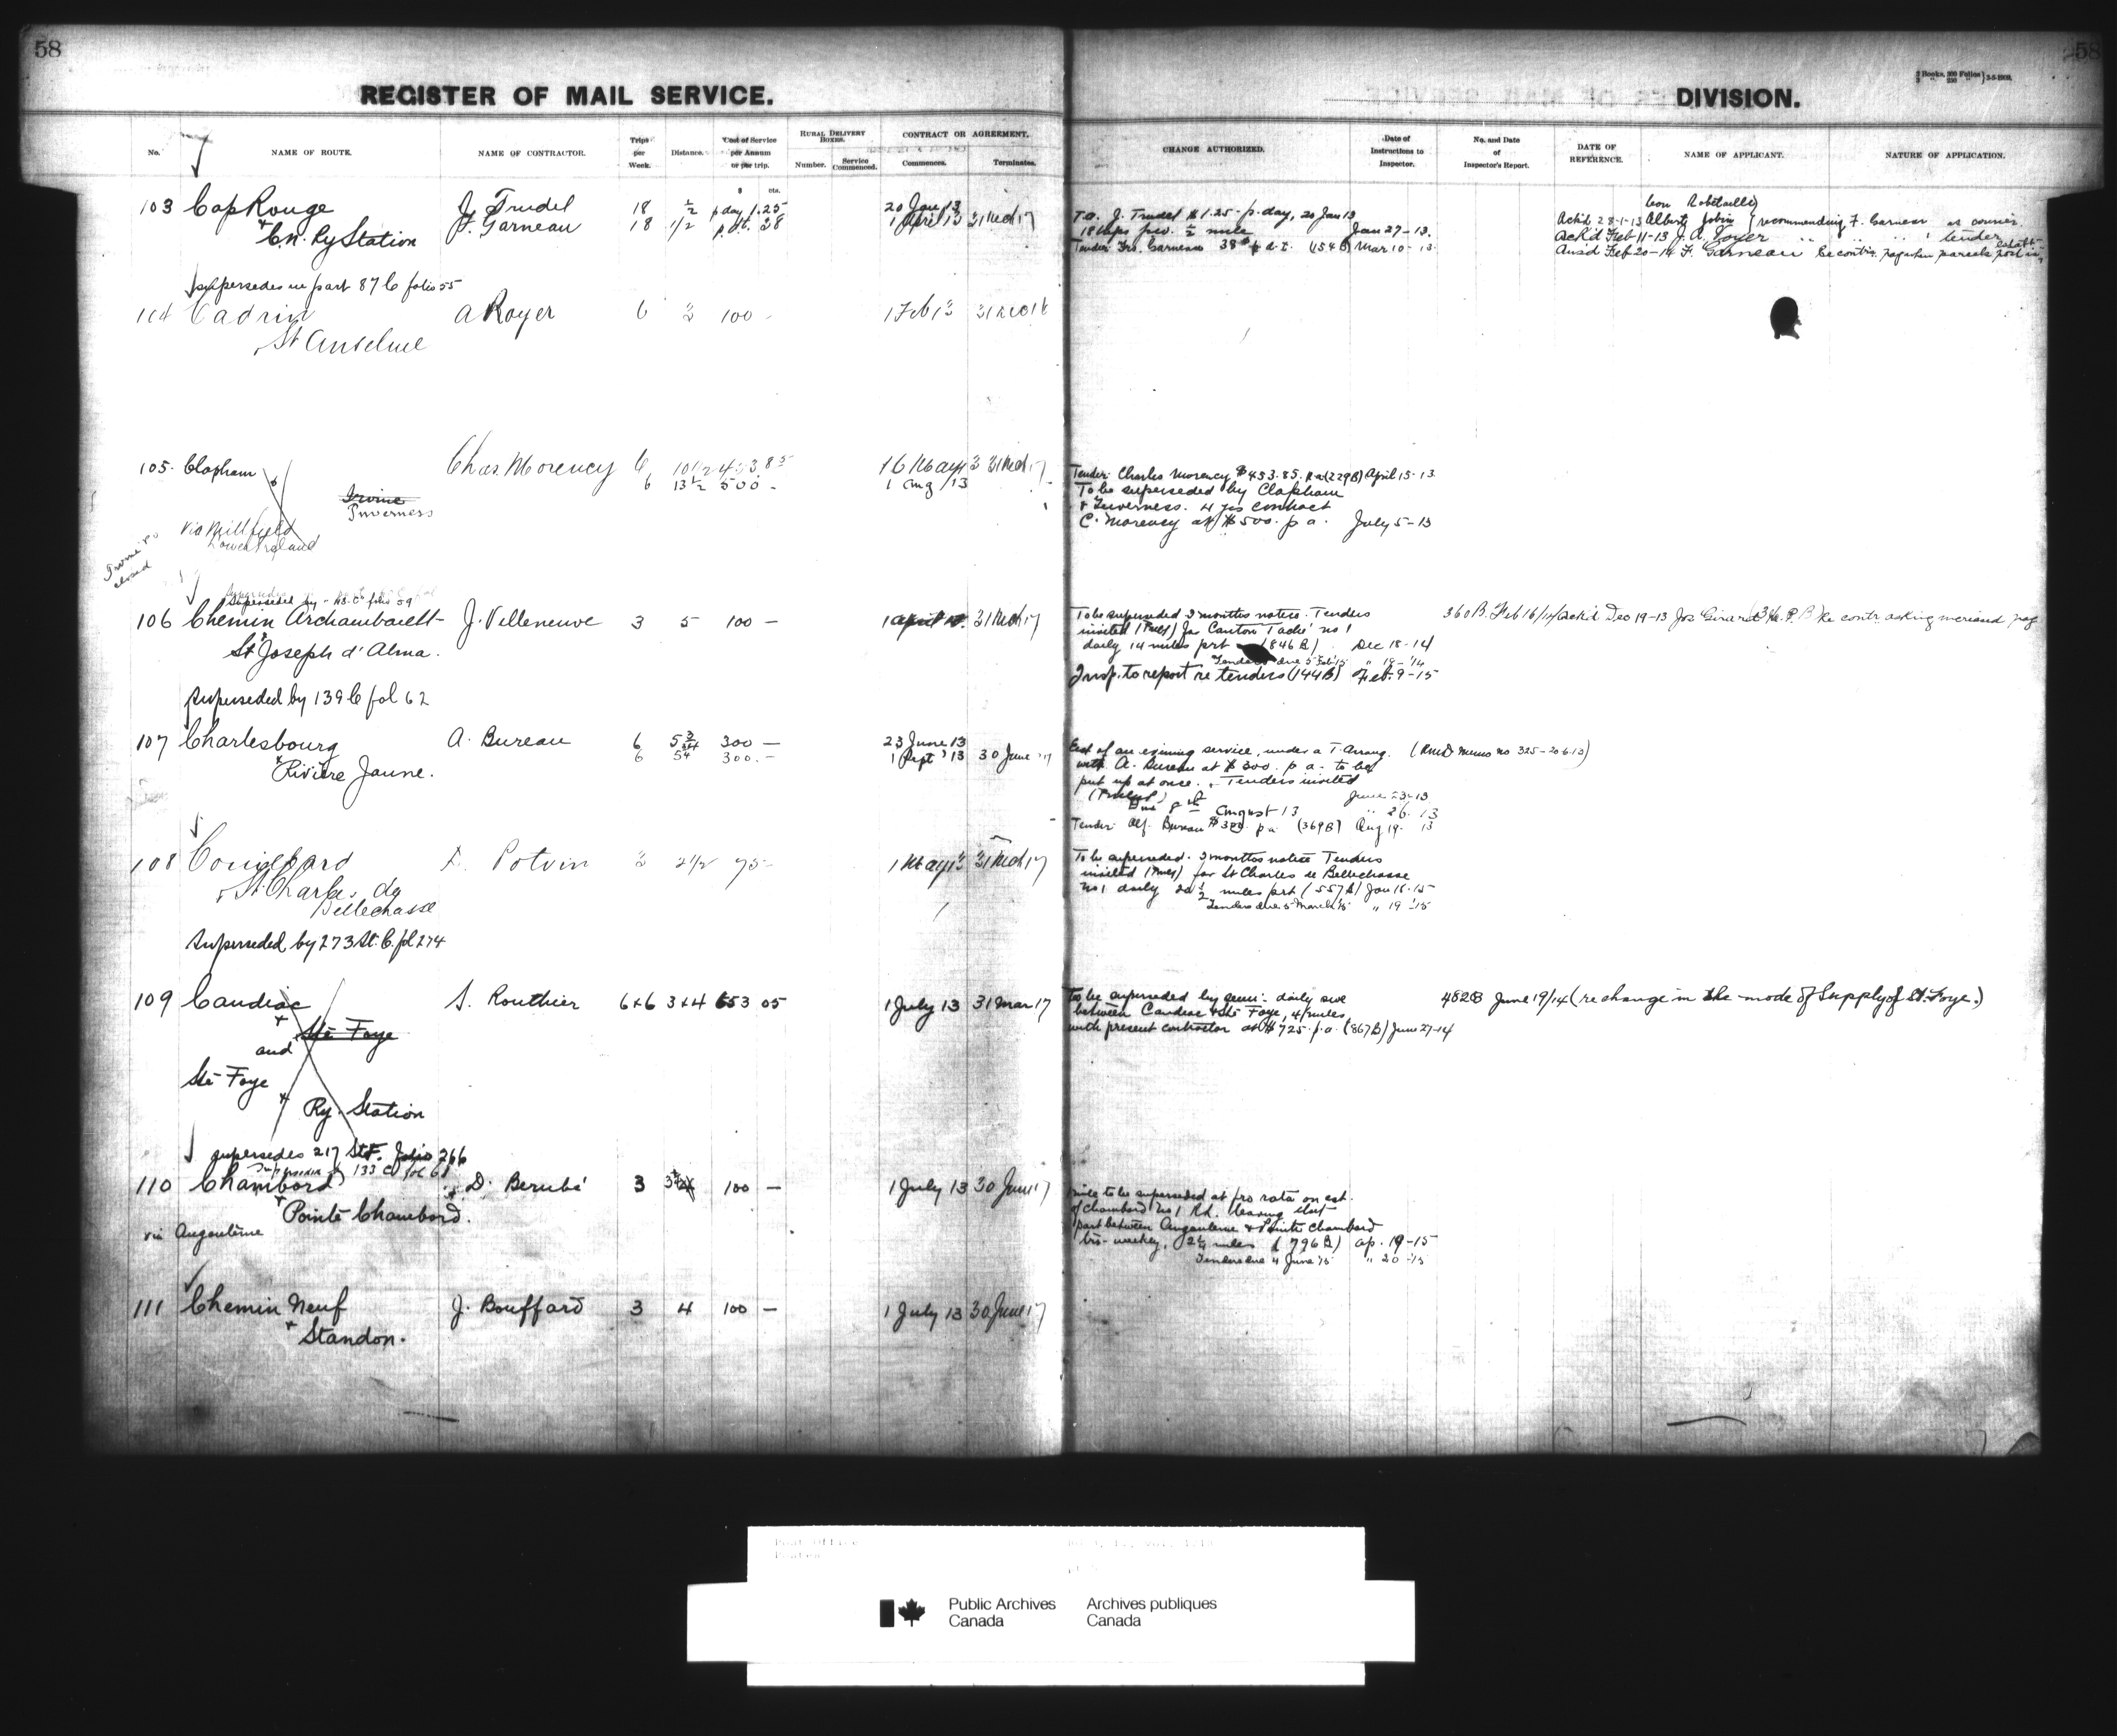 58
58
REGISTER OF MAIL SERVICE.
DIVISION.
No.
NAME OF ROUTE.
NAME OF CONTRACTOR.
Trips per Week.
Distance.
Cost of Service per Annum or per trip.
RURAL DELIVERY BOXES.
Number.
Service Commenced.
CONTRACT OR AGREEMENT.
Commences.
Terminates.
CHANGE AUTHORIZED.
Date of Instructions to Inspector.
No. and Date of Inspector's Report.
DATE OF REFERENCE.
NAME OF APPLICANT.
NATURE OF APPLICATION.
$ cts.
103 Cap Rouge J. Trudel 18 ½ p day 1.25 20 Jan 13
& Cn. Ry Station F. Garneau 18 1/2 p.d.t. 38 1 April 13 31 Mch 17
T.a. J. Trudel $1.25 p. day, 20 Jan 13
18 trips p.w. ½ mile Jan 27-13.
Tender Frs. Garneau 38¢ p d.t. (154B) Mar 10-13
Leon Robetaille
Ack'd 28-1-13 Albert Jobin recommending F. Garneau as courier
Ack'd Feb 11-13 J.A. " " " tender
Ans'd Feb 20-14 F. Garneau
supersedes in part 87 C folio 55
104 Cadrin A Royer 6 3 100 - 1 Feb 13
& St Anselme
105. Clapham Chas. Morency 6 10 1/2 453 85 16 May 13 31 Mch 17
6 13 ½ 500 - 1 Aug /13
Irvine
Inverness
via Millfield
Lower Ireland
Irvine P.O closed
Tender Charles Morency $453.85 p.a (229B) April 15-13
To be superseded by Clapham
& Inverness. 4 yrs contract
C. Morency at $500. p a. July 5-13
106 Chemin Archambault J. Villeneuve 3 5 100 - 1 April 31 Mch 17
& St Joseph d'Alma.
Superseded by 139 C fol 62
To be superseded 3 months notice. Tenders
invited (Miles) for Canton Taché no 1
daily 14 miles prt (846 B) Dec 18-14
Tenders due 5 Feb 15 " 19-'14
Insp. to report re tenders (144B) Feb. 9-15
360 B. Feb 16/14 Ack'd Dec 19-13 Jos Girard re contr. asking increased pay
107 Charlesbourg A. Bureau 6 5¾ 300 - 23 June 13
& Rivière Jaune. 6 5¾ 300. - 1 Sept '13 30 June '17
Est of an evening service, under a T. Arrang. (RMD memo no 325-20.6.13)
with A. Bureau at $300. p a. to be
put up at once. Tenders invited
June 23-13
Due 8th August 13 " 26. 13
Tender Alf. Bureau $300 p a (369B) Aug 19- 13
108 Potvin 3 2 1/2 75- 1 May 13 31 Mch 17
& St. Charles de
Bellechasse
Superseded by 273 St. C. fol 274
To be superseded. 3 months notice Tenders
invited (Miles) for St Charles de Bellechasse
no 1 daily 20 ½ miles prt (557B) Jan 18-15
Tenders due 5 March '15 " 19 '15
109 Candiac S. Routhier 6 & 6 3 & 4 653 05 1 July 13 31 Mar 17
& Ste Foye
and
Ste Foye
& Ry. Station
To be superseded by semi-daily sve
between Candiac & Ste Foye, 4 miles
with present contractor at $725. p.a. (867B) June 27-14
482B June 19/14 (re change in the mode of supply of St. Foye.)
supersedes 217 St. F. folio 266
Superseded by 133 C fol 61
110 Chambord D. Berubé 3 100 - 1 July 13 30 June 17
& Pointe Chambord.
via Angoulême
to be superseded at pro rata on est.
of Chambord no 1 R.R. leaving that
part between Angouleme & Pointe Chambord
tri-weekly, 2¼ miles (796B) Ap. 19-15
Tenders due 4 June '15 " 20-'15
111 Chemin Neuf J. Bouffard 3 4 100 - 1 July 13 30 June 17
& Standon.
Public Archives Canada
Archives publiques Canada